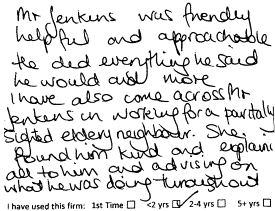 Mr Jenkins was friendly
helpful and approachable
he did everything he said
he would and more
I have also come across Mr
Jenkins in working for a partially
sighted eldery neighbour. She
found him kind and explaini
all to him and advising on
what he was doing throughout
I have used this firm: 1st Time <2 yrs 2-4 yrs 5+ yrs